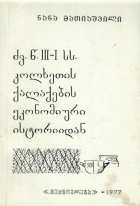 ნანა მათიაშვილი
ძვ. წ. III-I სს.
კოლხეთის
ქალაქების
ეკონომიური
ისტორიიდან
«მეცნიერება» • 1977